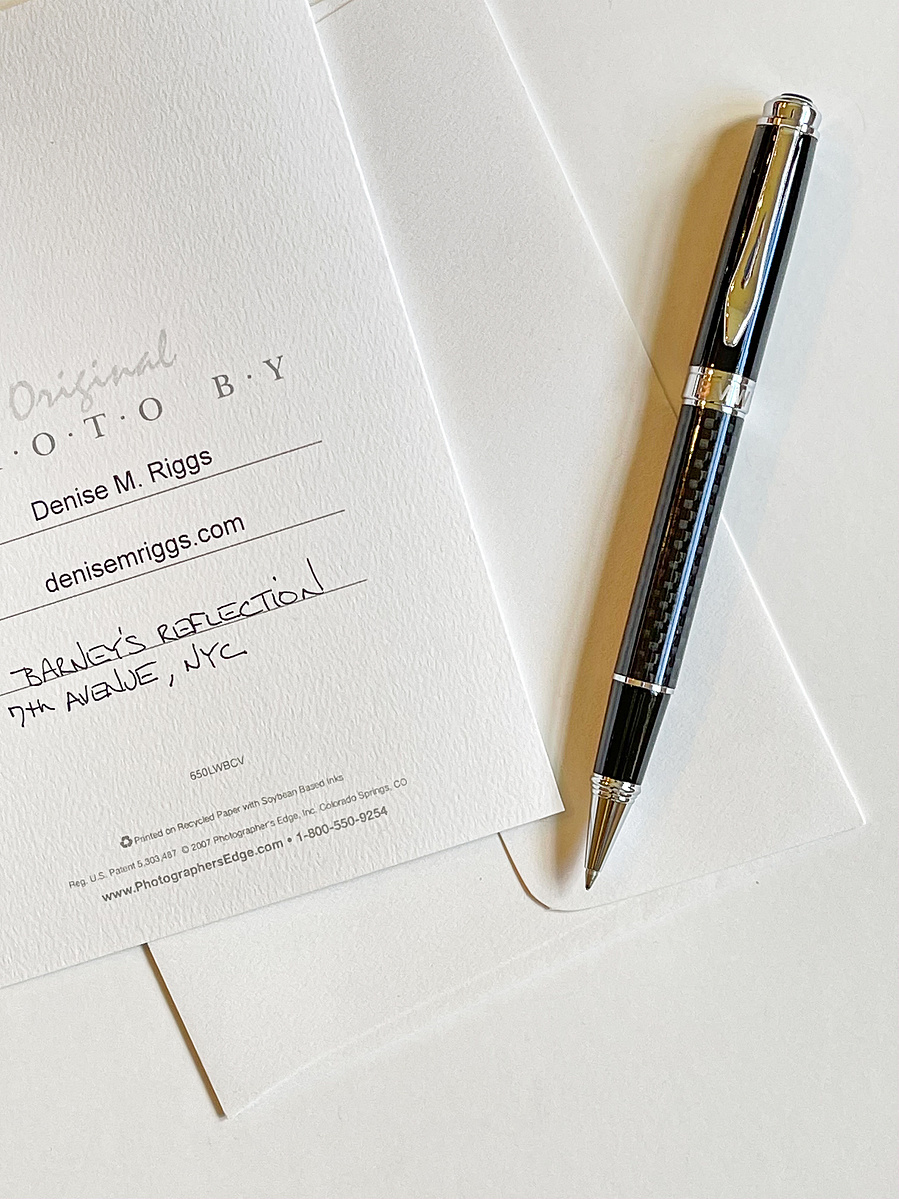 Original
O·T·O B·Y
Denise M. Riggs
denisemriggs.com
BARNEY'S REFLECTION
7th AVENUE, NYC
650LWBCV
Printed on Recycled Paper with Soybean Based Inks
Reg. U.S. Patent 5,303,487 © 2007 Photographer's Edge, Inc. Colorado Springs, CO
www.PhotographersEdge.com • 1-800-550-9254